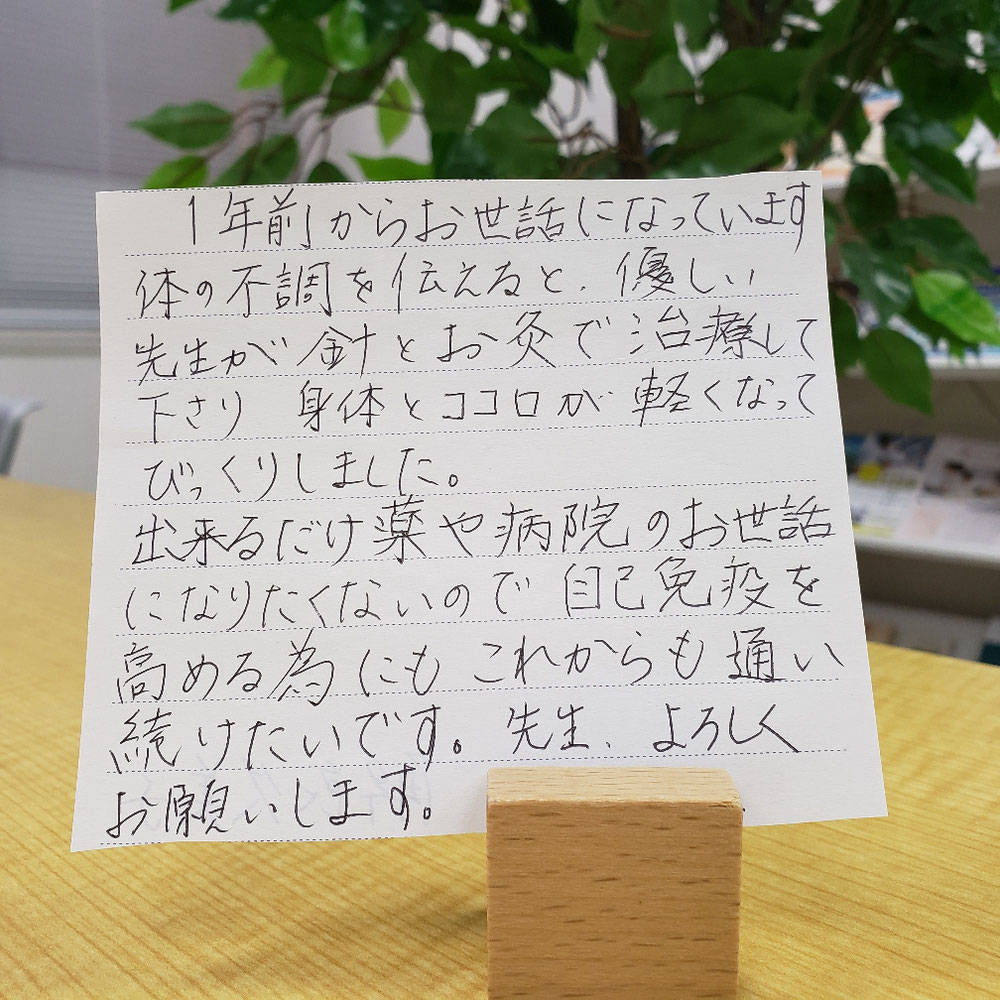 1年前からお世話になっています
体の不調を伝えると、優しい
先生が針とお灸で治療して
下さり 身体とココロが軽くなって
びっくりしました。
出来るだけ薬や病院のお世話
になりたくないので自己免疫を
高める為にもこれからも通い
続けたいです。先生、よろしく
お願いします。